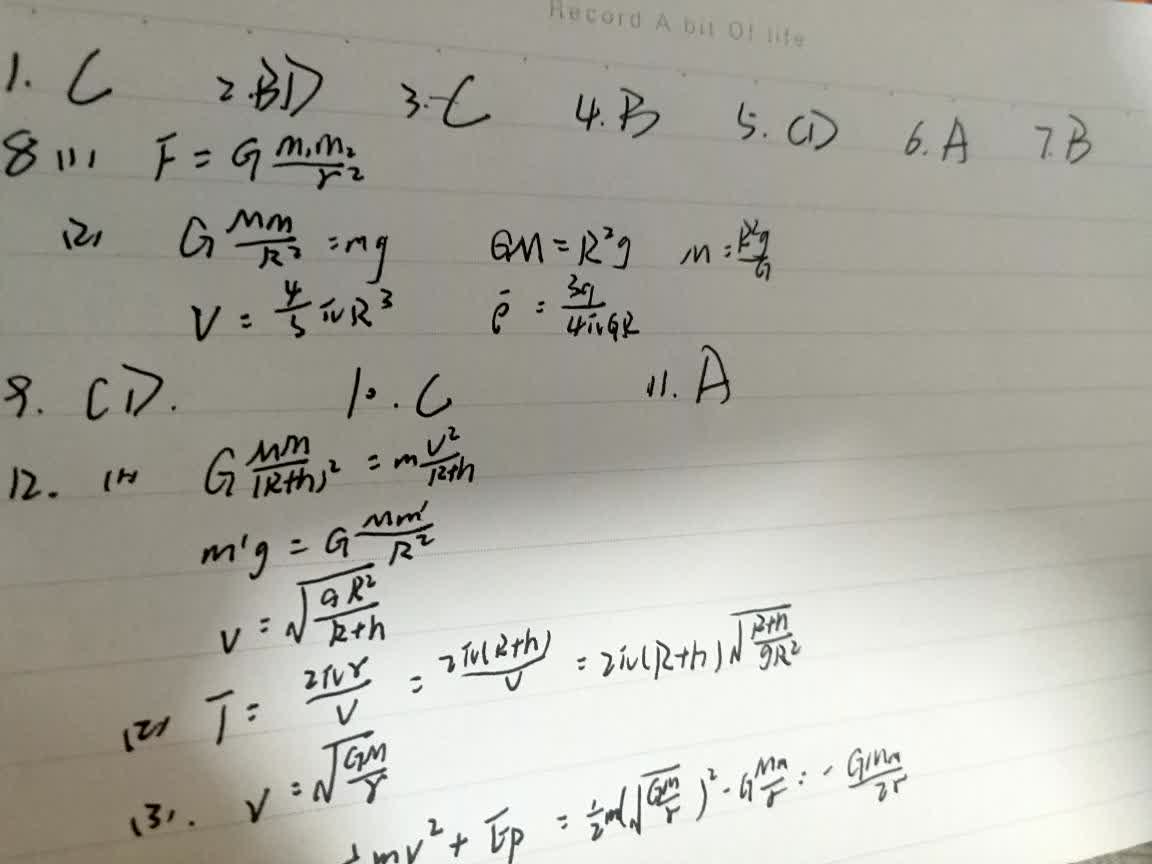 Record A bit Of life
1. C 2. BD 3. C 4. B 5. CD 6. A 7. B
8 (1) F = G m₁m₂/r²
(2) G Mm/R² = mg GM = R²g M = R²g/G
V = 4/3 πR³ ρ̄ = 3g/4πGR
9. CD. 10. C 11. A
12. (1) G Mm/(R+h)² = m v²/R+h
m'g = G Mm'/R²
v = √(gR²/R+h)
(2) T = 2πr/v = 2π(R+h)/v = 2π(R+h)√(R+h/gR²)
(3). v = √(GM/r)
mv² + Ep = ½m(√(GM/r))² - G Mm/r = - GMm/2r